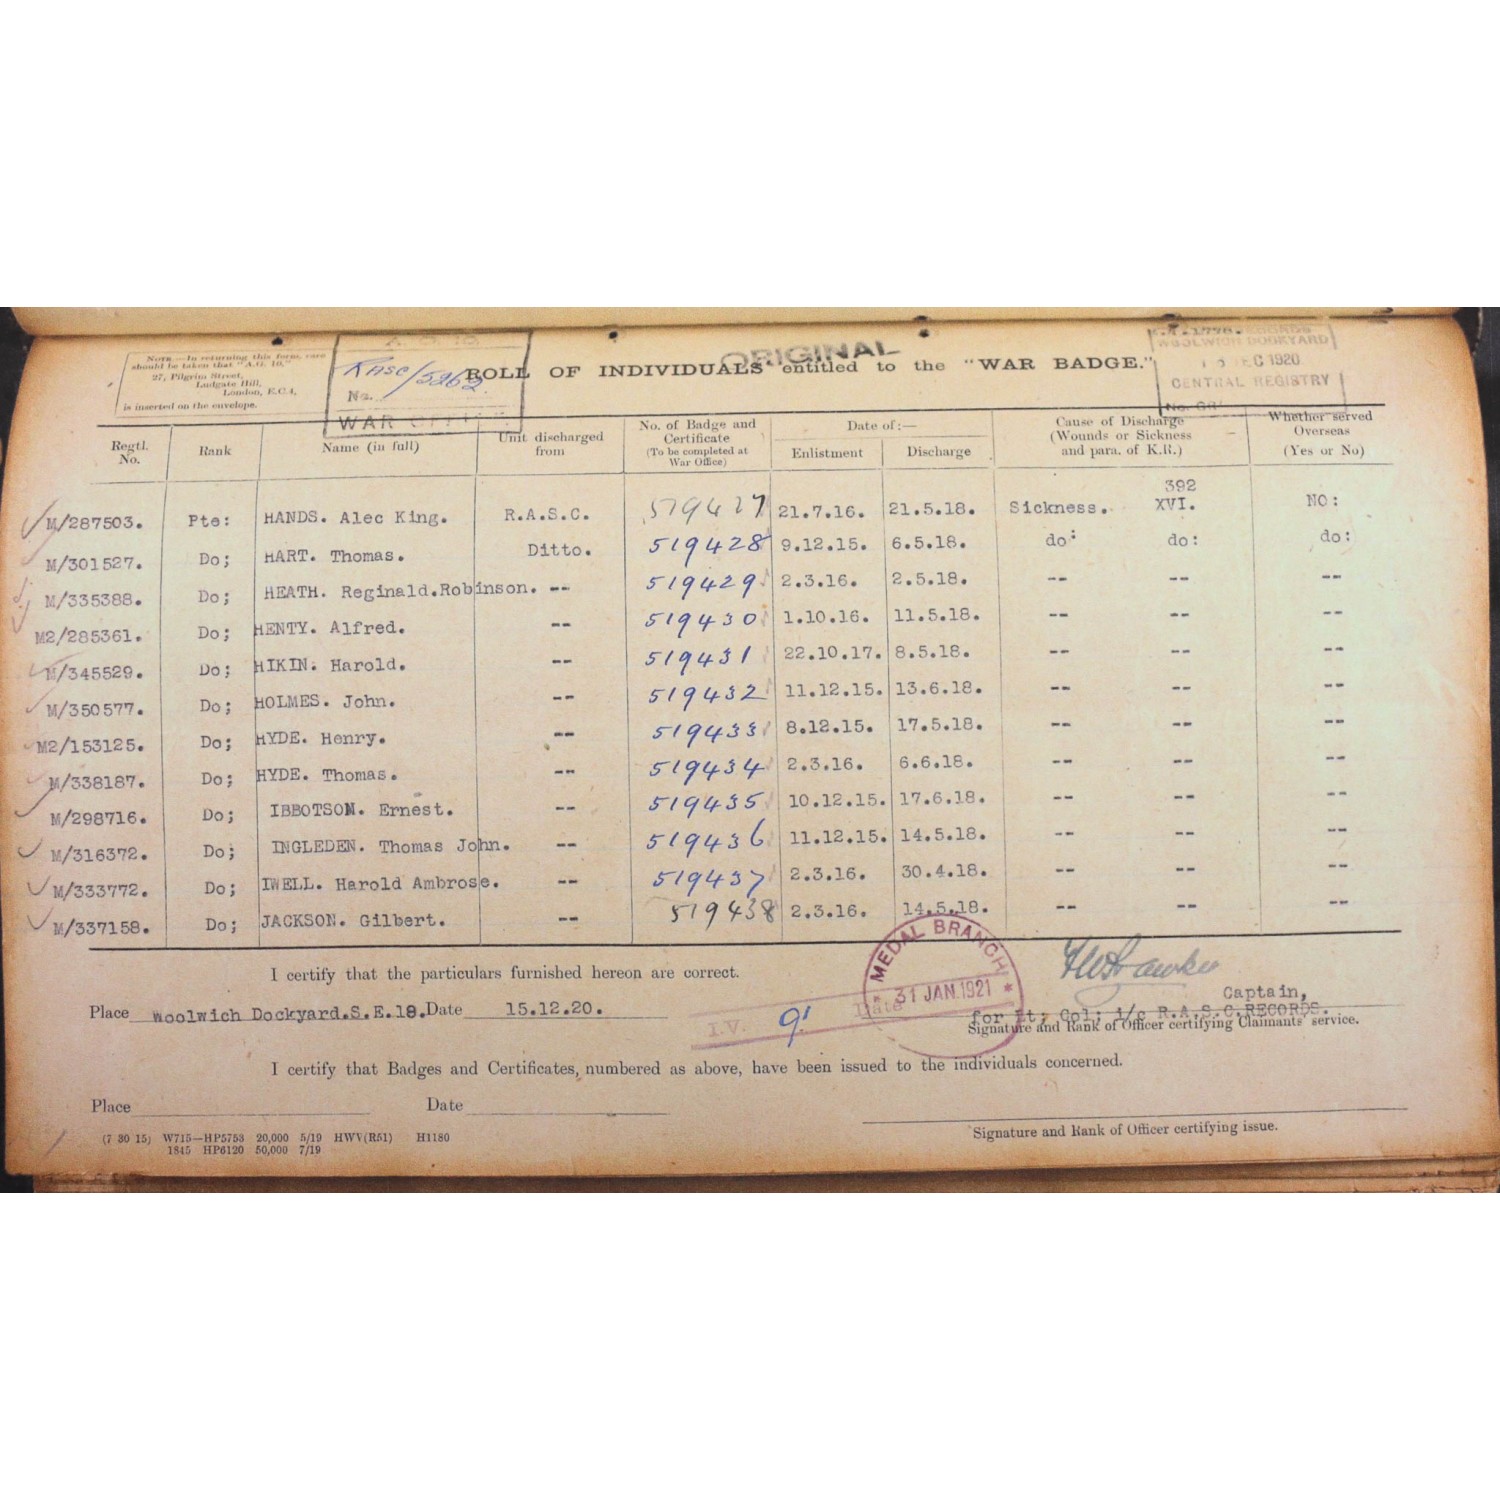 NOTE.—In returning this form, care
should be taken that "A.G. 10,"
27, Pilgrim Street,
Ludgate Hill,
London, E.C.4,
is inserted on the envelope.
A. G. 10
RASC/5262
No.
WAR OFFICE
ORIGINAL
ROLL OF INDIVIDUALS entitled to the "WAR BADGE."
WOOLWICH DOCKYARD
DEC 1920
CENTRAL REGISTRY
Regtl. No. Rank Name (in full) Unit discharged from No. of Badge and Certificate (To be completed at War Office) Date of:— Enlistment Discharge Cause of Discharge (Wounds or Sickness and para. of K.R.) Whether served Overseas (Yes or No)
M/287503. Pte: HANDS. Alec King. R.A.S.C. 519427 21.7.16. 21.5.18. Sickness. 392 XVI. NO:
M/301527. Do; HART. Thomas. Ditto. 519428 9.12.15. 6.5.18. do: do: do:
M/335388. Do; HEATH. Reginald.Robinson. -- 519429 2.3.16. 2.5.18. -- -- --
M2/285361. Do; HENTY. Alfred. -- 519430 1.10.16. 11.5.18. -- -- --
M/345529. Do; HIKIN. Harold. -- 519431 22.10.17. 8.5.18. -- -- --
M/350577. Do; HOLMES. John. -- 519432 11.12.15. 13.6.18. -- -- --
M2/153125. Do; HYDE. Henry. -- 519433 8.12.15. 17.5.18. -- -- --
M/338187. Do; HYDE. Thomas. -- 519434 2.3.16. 6.6.18. -- -- --
M/298716. Do; IBBOTSON. Ernest. -- 519435 10.12.15. 17.6.18. -- -- --
M/316372. Do; INGLEDEN. Thomas John. -- 519436 11.12.15. 14.5.18. -- -- --
M/333772. Do; IWELL. Harold Ambrose. -- 519437 2.3.16. 30.4.18. -- -- --
M/337158. Do; JACKSON. Gilbert. -- 519438 2.3.16. 14.5.18. -- -- --
I certify that the particulars furnished hereon are correct.
MEDAL BRANCH
* 31 JAN.1921 *
I.V. 9 Date
Captain,
Place Woolwich Dockyard.S.E.18. Date 15.12.20.
for Lt; Col; i/c R.A.S.C.RECORDS.
Signature and Rank of Officer certifying Claimants' service.
I certify that Badges and Certificates, numbered as above, have been issued to the individuals concerned.
Place Date
Signature and Rank of Officer certifying issue.
(7 30 15) W715—HP5753 20,000 5/19 HWV(R51) H1180
1845 HP6120 50,000 7/19